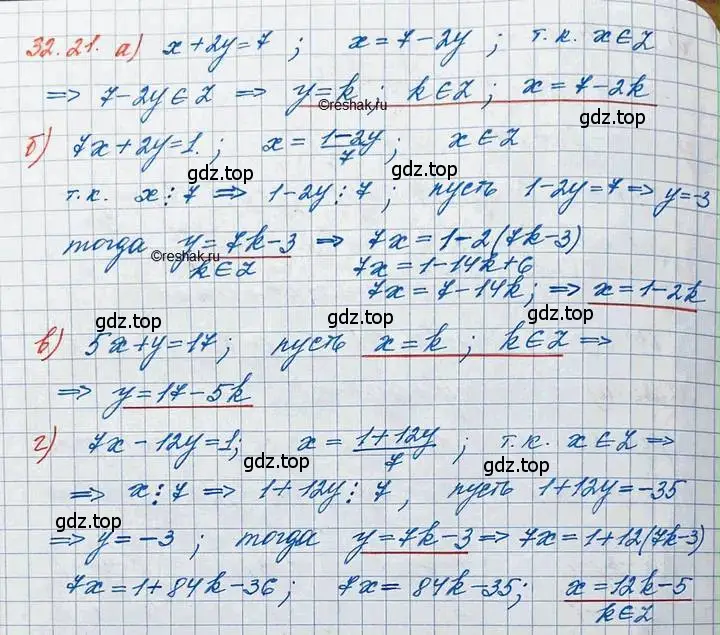 32.21. а) x+2y=7 ; x=7-2y ; т.к. x∈Z
⇒ 7-2y∈Z ⇒ y=k; k∈Z; x=7-2k
©reshak.ru
б) 7x+2y=1. ; x=(1-2y)/7 ; x∈Z
gdz.top gdz.top
т.к. x⋮7 ⇒ 1-2y⋮7 ; пусть 1-2y=7 ⇒ y=-3
тогда y=7k-3 ⇒ 7x=1-2(7k-3)
©reshak.ru
k∈Z 7x=1-14k+6
7x=7-14k; ⇒ x=1-2k
gdz.top gdz.top
в) 5x+y=17; пусть x=k ; k∈Z ⇒
⇒ y=17-5k
г) 7x-12y=1; x=(1+12y)/7 ; т.к. x∈Z ⇒
gdz.top gdz.top
⇒ x⋮7 ⇒ 1+12y⋮7, пусть 1+12y=-35
gdz.top gdz.top
⇒ y=-3 ; тогда y=7k-3 ⇒ 7x=1+12(7k-3)
7x=1+84k-36 ; 7x=84k-35; x=12k-5
k∈Z